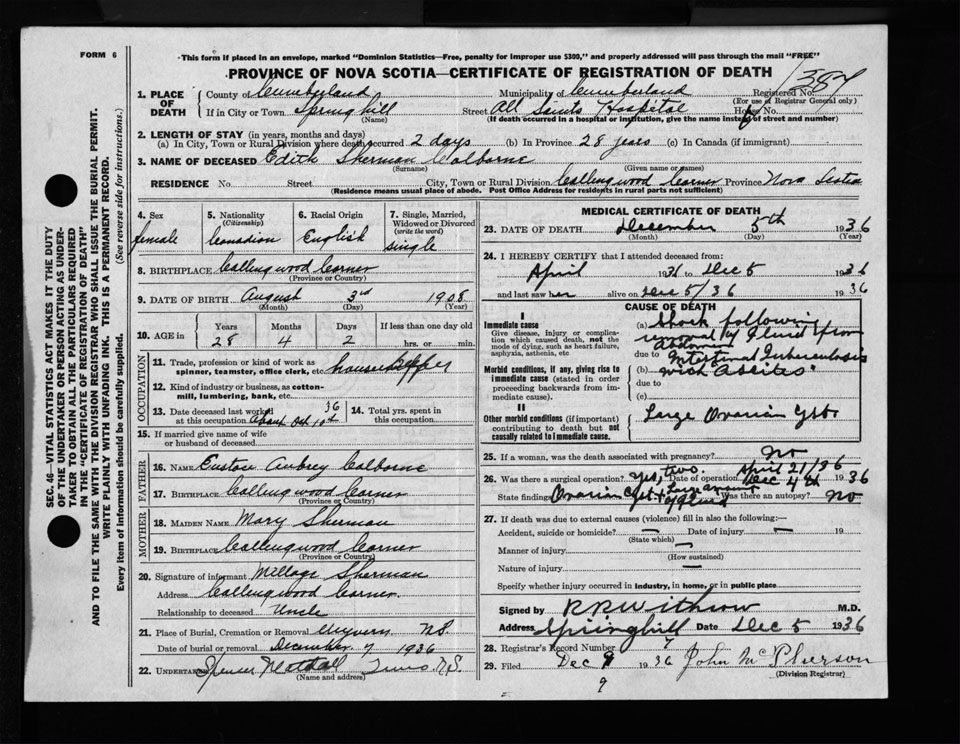 FORM 6
This form if placed in an envelope, marked "Dominion Statistics—Free, penalty for improper use $300," and properly addressed will pass through the mail "FREE"
PROVINCE OF NOVA SCOTIA—CERTIFICATE OF REGISTRATION OF DEATH
387
1. PLACE OF DEATH
County of Cumberland Municipality of Cumberland Registered No.
(For use of Registrar General only)
If in City or Town Springhill Street All Saints Hospital House No.
(Name) (If death occurred in a hospital or institution, give the name instead of street and number)
2. LENGTH OF STAY (in years, months and days)
(a) In City, Town or Rural Division where death occurred 2 days (b) In Province 28 years (c) In Canada (if immigrant)
3. NAME OF DECEASED Edith Sherman Colborne
(Surname) (Given name or names)
RESIDENCE No. Street City, Town or Rural Division Collingwood Corner Province Nova Scotia
(Residence means usual place of abode. Post Office Address for residents in rural parts not sufficient)
SEC. 46—VITAL STATISTICS ACT MAKES IT THE DUTY OF THE UNDERTAKER OR PERSON ACTING AS UNDERTAKER TO OBTAIN ALL THE PARTICULARS REQUIRED IN THE "CERTIFICATE OF REGISTRATION OF DEATH"
AND TO FILE THE SAME WITH THE DIVISION REGISTRAR WHO SHALL ISSUE THE BURIAL PERMIT.
WRITE PLAINLY WITH UNFADING INK. THIS IS A PERMANENT RECORD.
Every item of information should be carefully supplied. (See reverse side for instructions.)
4. Sex female
5. Nationality (Citizenship) Canadian
6. Racial Origin English
7. Single, Married, Widowed or Divorced (write the word) single
8. BIRTHPLACE Collingwood Corner
(Province or Country)
9. DATE OF BIRTH August 3rd 1908
(Month) (Day) (Year)
10. AGE in Years 28 Months 4 Days 2 If less than one day old
hrs. or min.
OCCUPATION
11. Trade, profession or kind of work as spinner, teamster, office clerk, etc. housekeeper
12. Kind of industry or business, as cotton-mill, lumbering, bank, etc.
13. Date deceased last worked at this occupation About Oct 10th 36
14. Total yrs. spent in this occupation
15. If married give name of wife or husband of deceased
FATHER
16. NAME Eustace Aubrey Colborne
17. BIRTHPLACE Collingwood Corner
(Province or Country)
MOTHER
18. MAIDEN NAME Mary Sherman
19. BIRTHPLACE Collingwood Corner
(Province or Country)
20. Signature of informant Sherman
Address Collingwood Corner.
Relationship to deceased Uncle
21. Place of Burial, Cremation or Removal N.S.
Date of burial or removal December 7 1936
22. UNDERTAKER N.S.
(Name and address)
MEDICAL CERTIFICATE OF DEATH
23. DATE OF DEATH December 5th 1936
(Month) (Day) (Year)
24. I HEREBY CERTIFY that I attended deceased from:
April 1936 to Dec 5 1936
and last saw her alive on Dec 5/36 1936
CAUSE OF DEATH
I
Immediate cause
Give disease, injury or complication which caused death, not the mode of dying, such as heart failure, asphyxia, asthenia, etc
(a) Shock following
removal of fluid from
Abdomen
due to Intestinal Tuberculosis
Morbid conditions, if any, giving rise to immediate cause (stated in order proceeding backwards from immediate cause).
(b) with Ascites"
due to
(c)
II
Other morbid conditions (if important) contributing to death but not causally related to immediate cause.
Large Ovarian Cyst
25. If a woman, was the death associated with pregnancy? No
26. Was there a surgical operation? Yes, two. Date of operation April 21/36 Dec 4th 1936
State findings Ovarian Cyst + Large amount of fluid Was there an autopsy? No
27. If death was due to external causes (violence) fill in also the following:—
Accident, suicide or homicide? — Date of injury — 19
(State which)
Manner of injury —
(How sustained)
Nature of injury —
Specify whether injury occurred in industry, in home, or in public place
Signed by R R Withrow M.D.
Address Springhill Date Dec 5 1936
28. Registrar's Record Number
29. Filed Dec 9 1936 John McPherson
(Division Registrar)
9